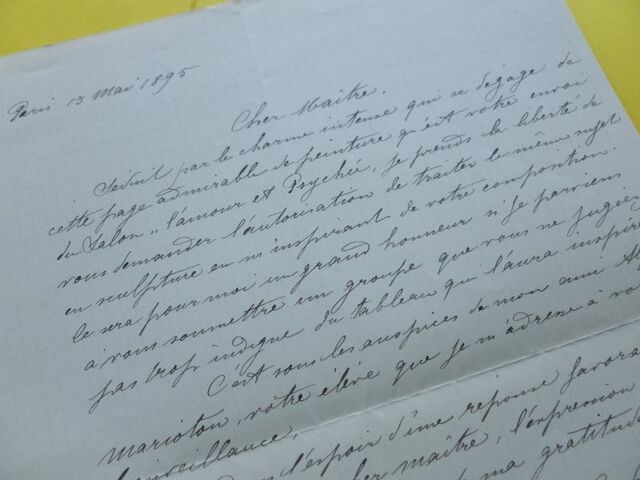 Paris 15 Mai 1895
Cher Maître,
Séduit par le charme intense qui se dégage de
cette page admirable de peinture qu'est votre envoi
du Salon „ l'amour et Psyché, je prends la liberté de
vous demander l'autorisation de traiter le même sujet
en sculpture en m'inspirant de votre composition.
Ce sera pour moi un grand honneur si je parviens
à vous soumettre un groupe que vous ne jugiez
pas trop indigne du tableau qui l'aura inspiré
C'est sous les auspices de mon ami
Marioton, votre élève que je m'adresse à
l'espoir d'une réponse
maître, l'expression
ma gratitude